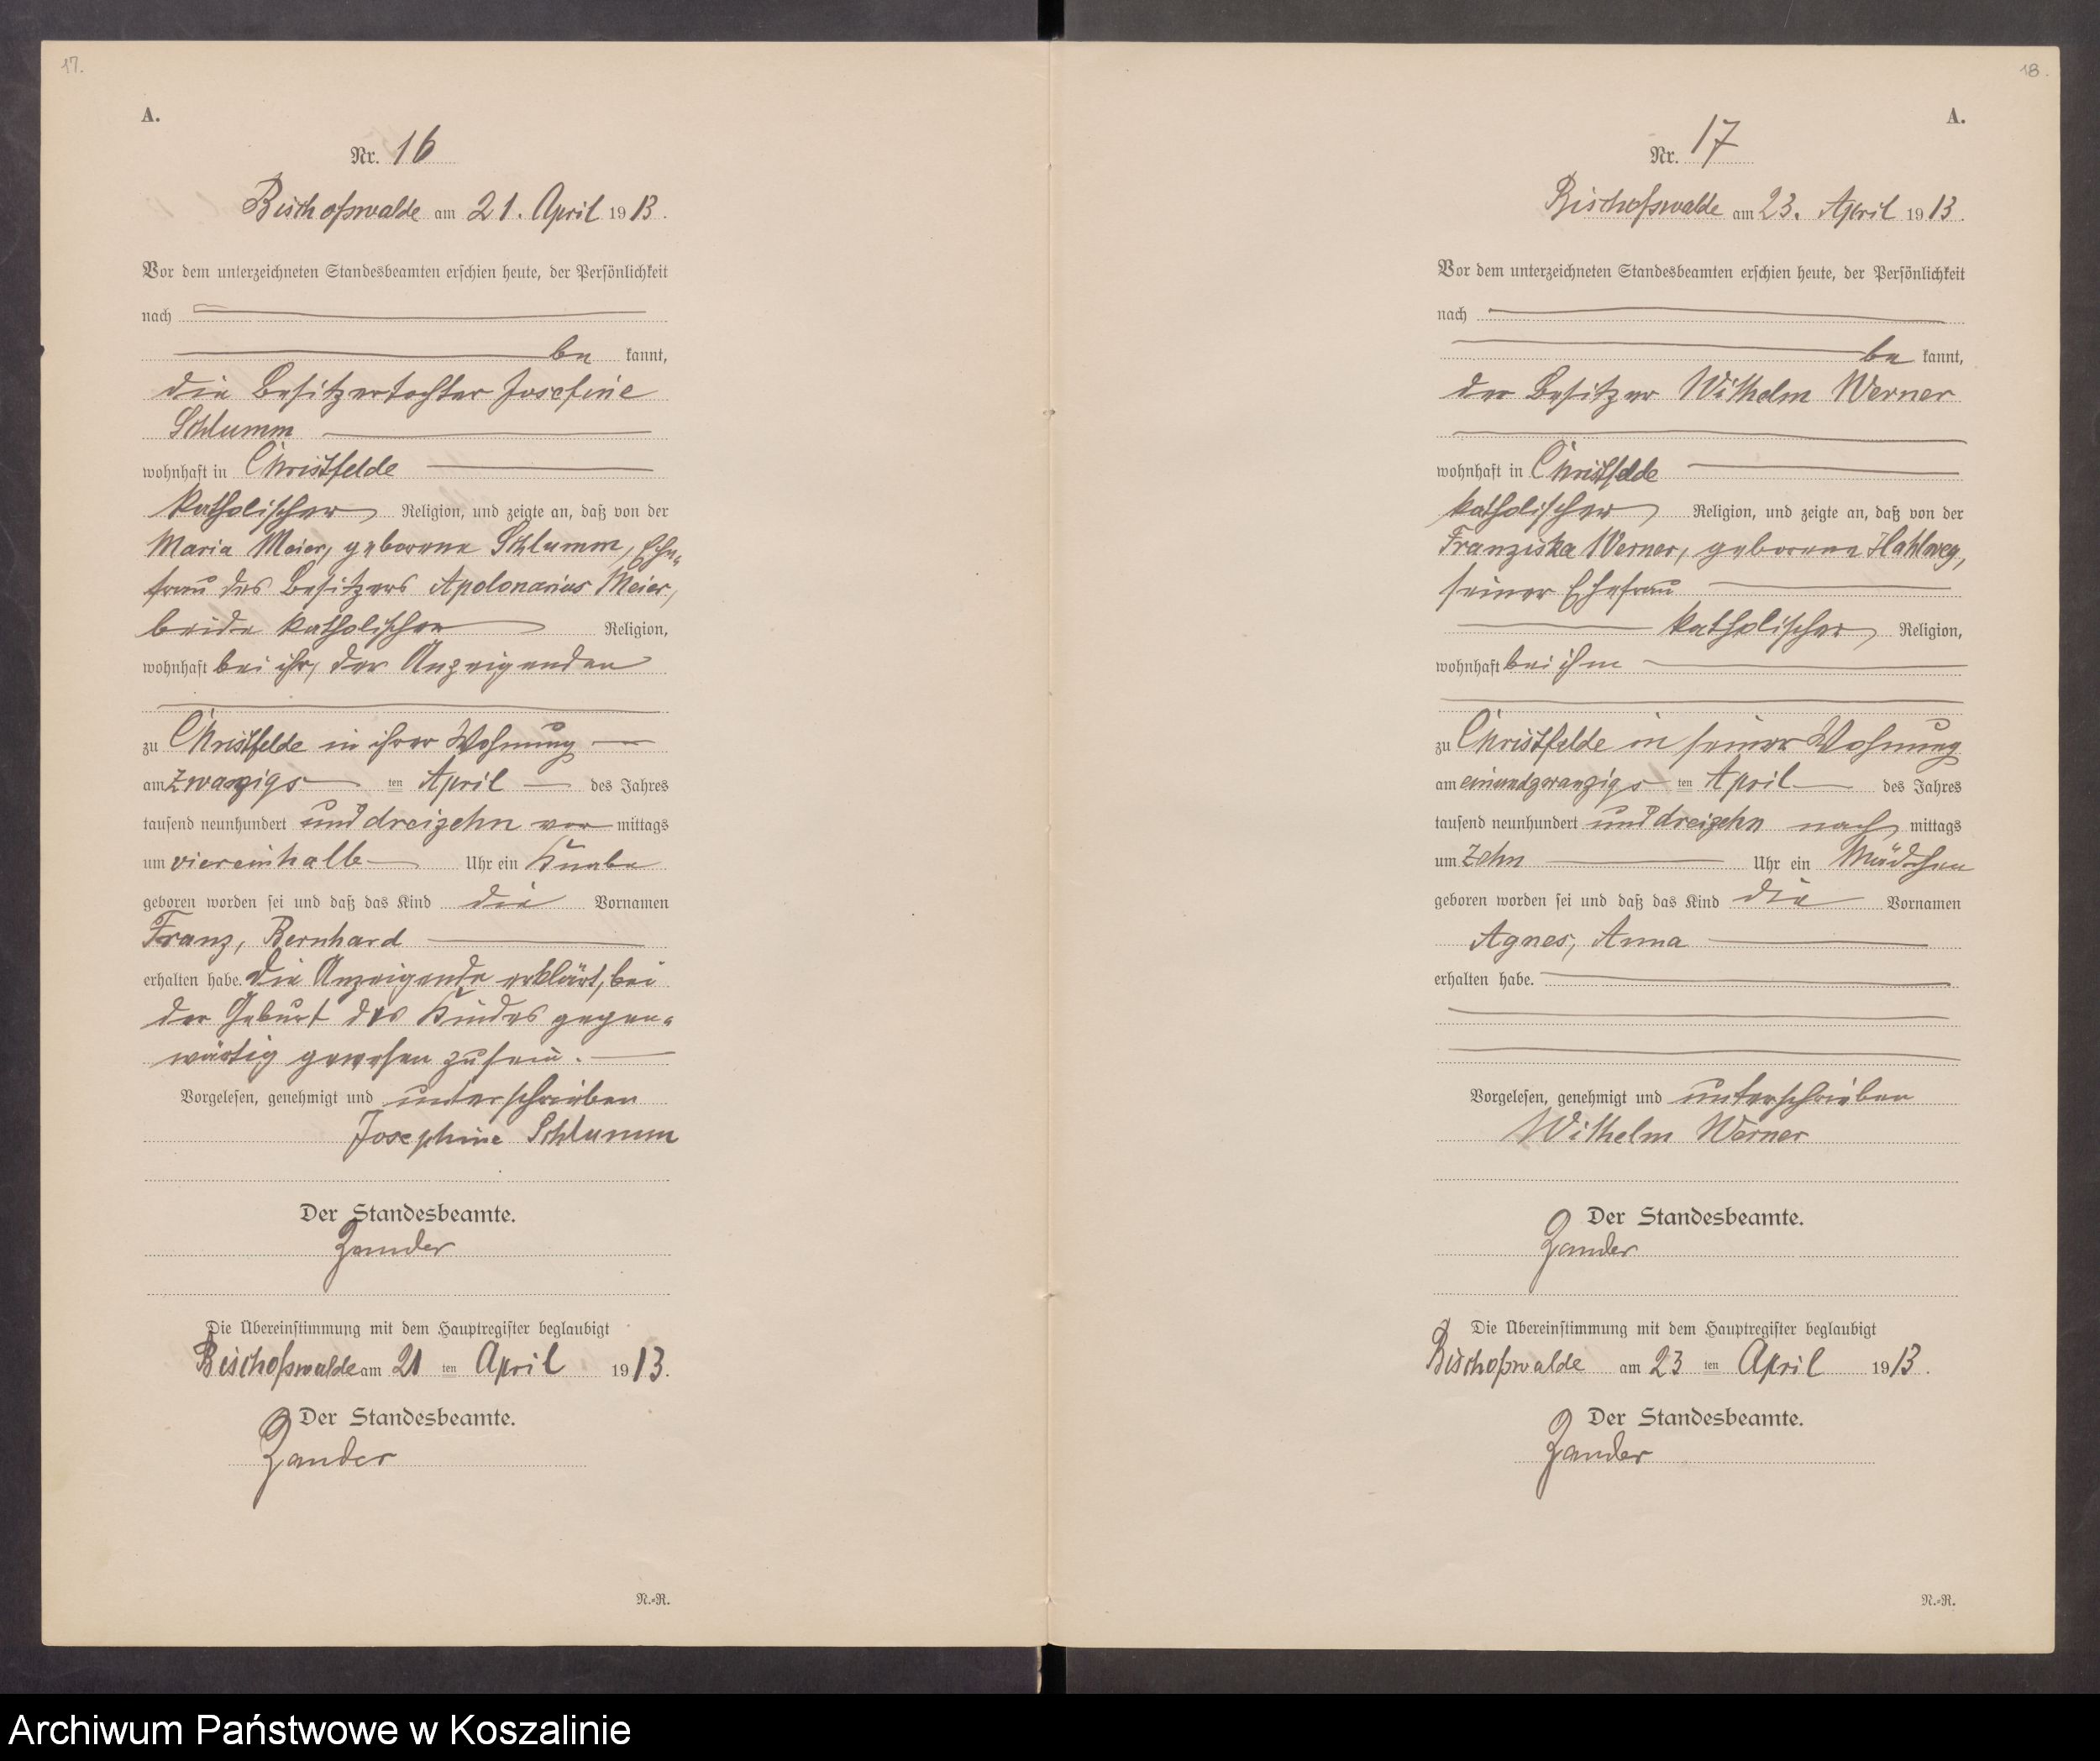 17.
A.
Nr. 16
Bischofswalde am 21. April 1913.
Vor dem unterzeichneten Standesbeamten erschien heute, der Persönlichkeit
nach
be kannt,
die Besitzertochter Josefine
Schlumm
wohnhaft in Christfelde
katholischer Religion, und zeigte an, daß von der
Maria Meier, geborene Schlumm, Ehe-
frau des Besitzers Apolonarius Meier,
beide katholischer Religion,
wohnhaft bei ihr, der Anzeigenden
zu Christfelde in ihrer Wohnung
am zwanzigs ten April des Jahres
tausend neunhundert und dreizehn vor mittags
um viereinhalb Uhr ein Knabe
geboren worden sei und daß das Kind die Vornamen
Franz, Bernhard
erhalten habe. Die Anzeigende erklärt, bei
der Geburt des Kindes gegen-
wärtig gewesen zu sein.
Vorgelesen, genehmigt und unterschrieben
Josephine Schlumm
Der Standesbeamte.
Zander
Die Übereinstimmung mit dem Hauptregister beglaubigt
Bischofswalde am 21 ten April 1913.
Der Standesbeamte.
Zander
N.-R.
18.
A.
Nr. 17
Bischofswalde am 23. April 1913.
Vor dem unterzeichneten Standesbeamten erschien heute, der Persönlichkeit
nach
be kannt,
der Besitzer Wilhelm Werner
wohnhaft in Christfelde
katholischer Religion, und zeigte an, daß von der
Franziska Werner, geborene Hahlweg,
seiner Ehefrau
katholischer Religion,
wohnhaft bei ihm
zu Christfelde in seiner Wohnung
am einundzwanzigs ten April des Jahres
tausend neunhundert und dreizehn nach mittags
um zehn Uhr ein Mädchen
geboren worden sei und daß das Kind die Vornamen
Agnes, Anna
erhalten habe.
Vorgelesen, genehmigt und unterschrieben
Wilhelm Werner
Der Standesbeamte.
Zander
Die Übereinstimmung mit dem Hauptregister beglaubigt
Bischofswalde am 23 ten April 1913.
Der Standesbeamte.
Zander
N.-R.
Archiwum Państwowe w Koszalinie